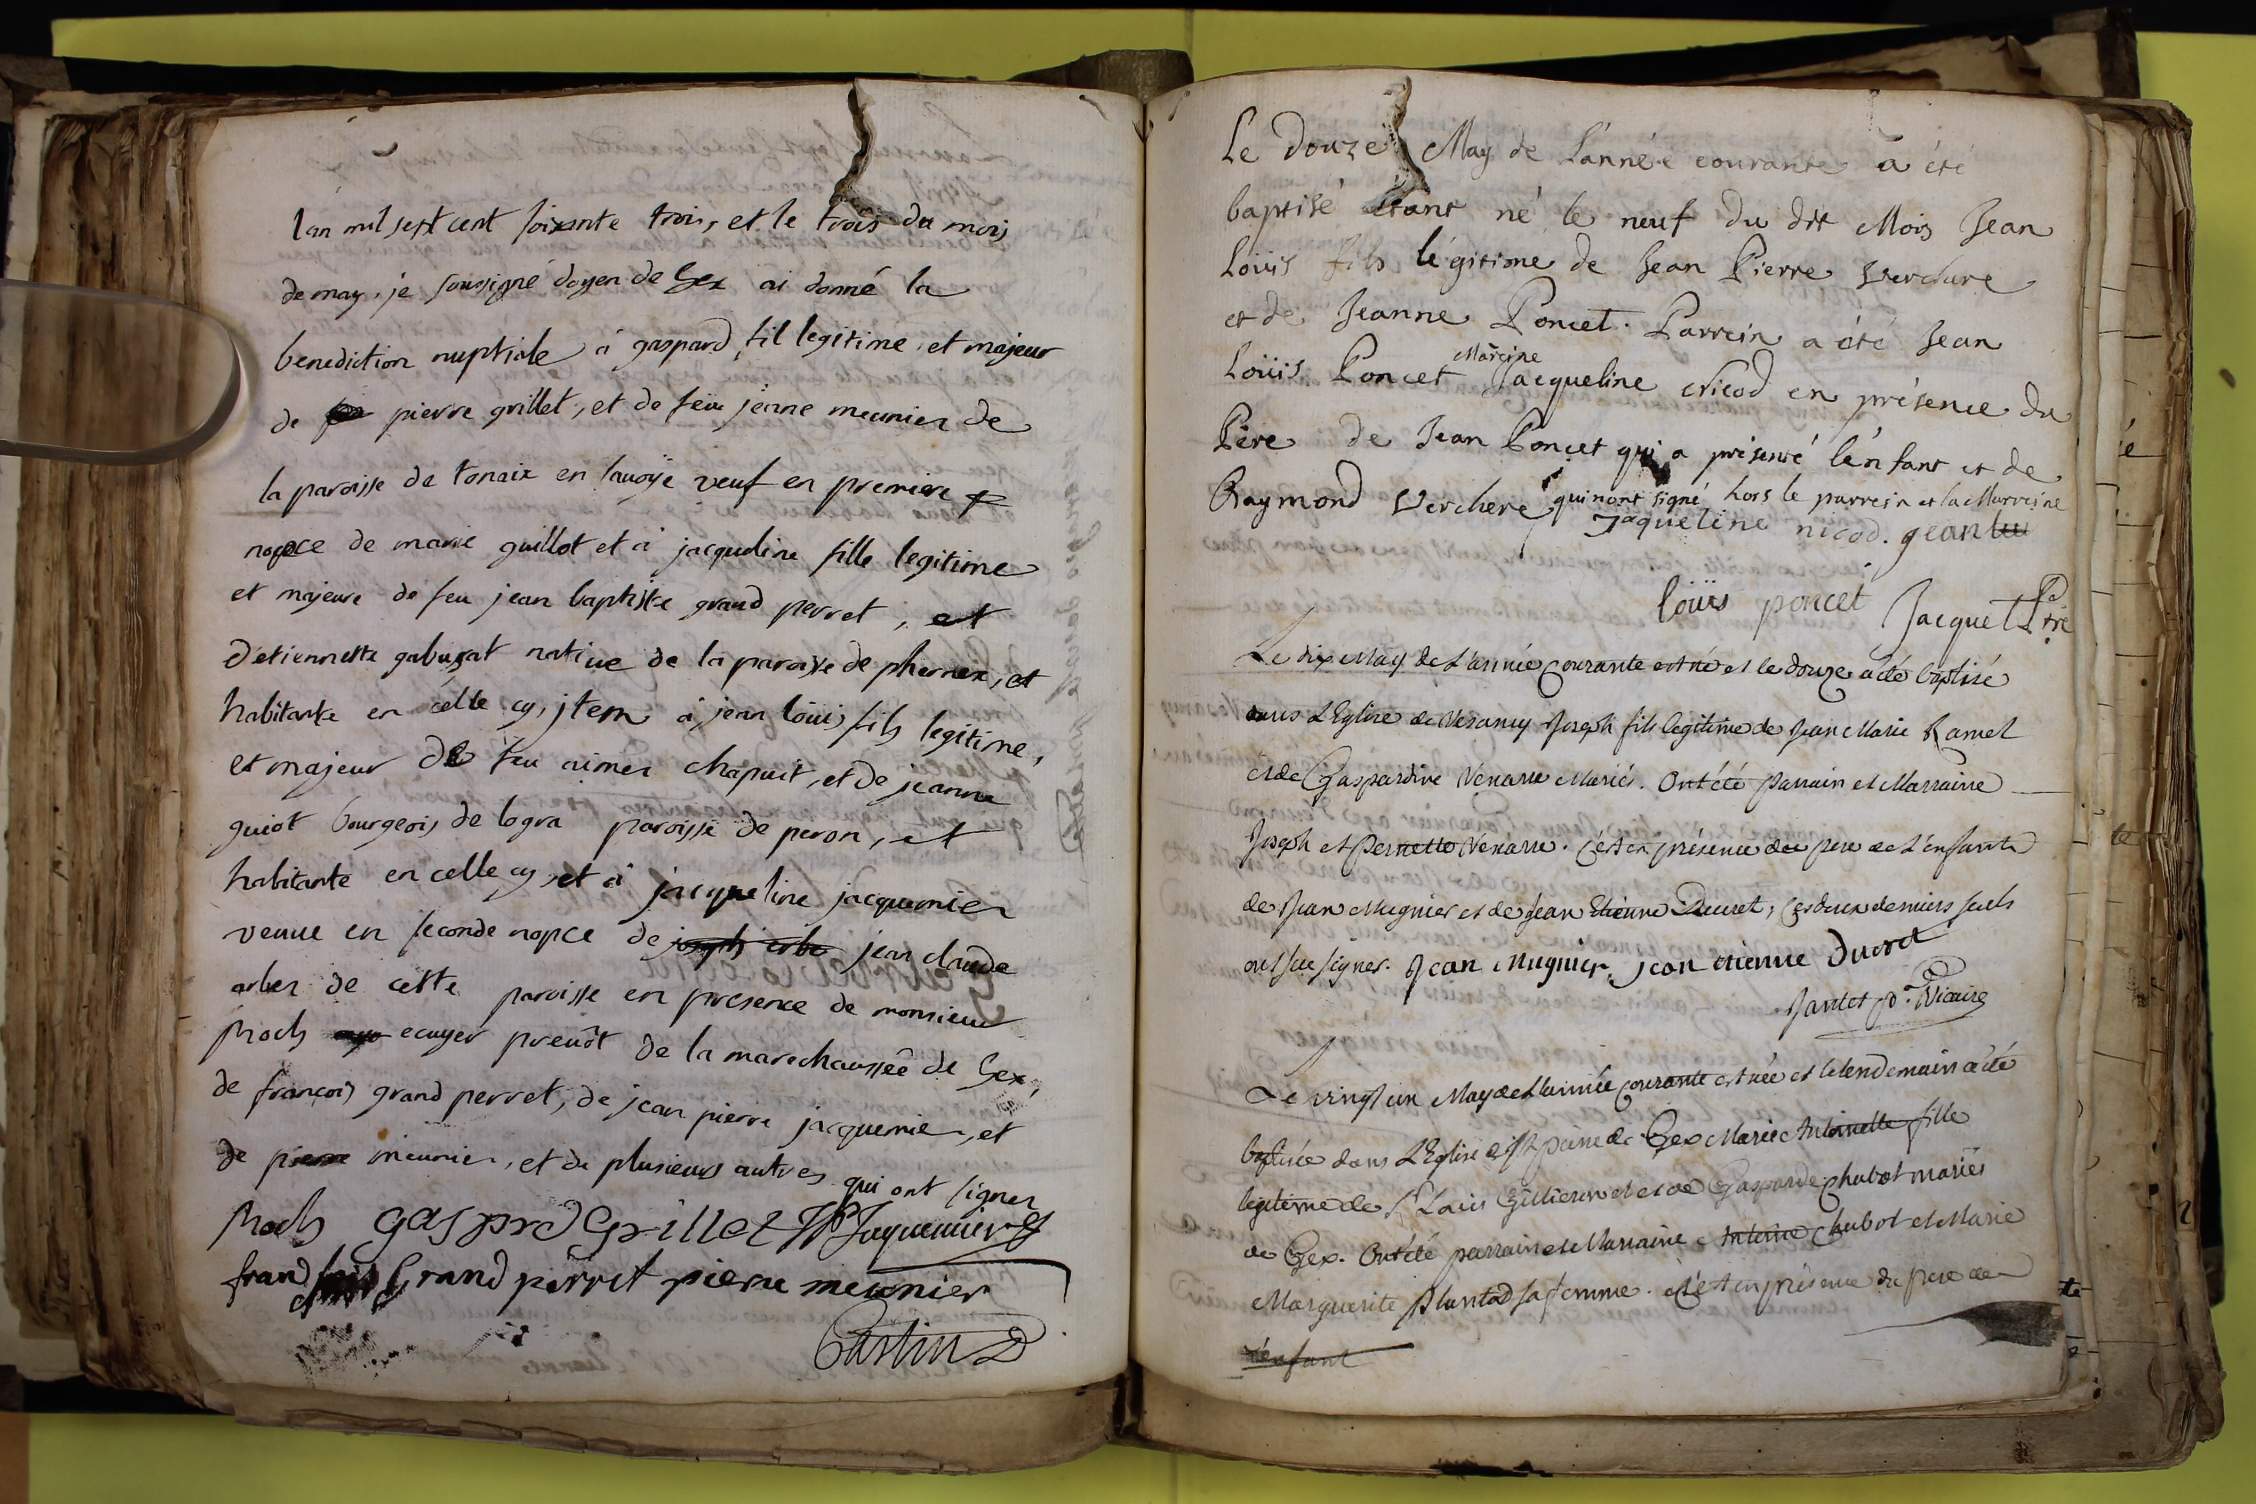 lan mil sept cent soixante trois, et le trois du mois
de may, je soussigné doyen de Gex ai donné la
benediction nuptiale a gaspard fil legitime et majeur
de pierre grillet, et de feue jeanne meunier de
la paroisse de tonaix en savoÿe veuf en premiere
nopce de marie guillot et a jacqueline fille legitime
et majeure de feu jean baptiste grand perret, et
d'etiennette gabusat native de la paroisse de phernex, et
habitante en celle cy, jtem a jean loüis fils legitime,
et majeur de feu aimer chapuit, et de jeanne
guiot bourgeois de logra paroisse de peron, et
habitante en celle cy, et a jacqueline jacquemier
veuve en seconde nopce de jean claude
arber de cette paroisse en presence de monsieur
Roch ecuyer prevôt de la marechaussée de Gex,
de françois grand perret, de jean pierre jacquemier, et
de pierre meunier, et de plusieurs autres qui ont signer
Roch gasprd Grillet JP Jaquemier
Grand perret pierre meunier
Castin D
Le Douze May de L'année courante a été
baptisé étant né le neuf du dit Mois Jean
Loüis fils légitime de Jean Pierre Verchere
et de Jeanne Poncet. Parrein a été Jean
Loüis Poncet Mareine Jacqueline Nicod en présence du
Père de Jean Poncet qui a présenté l'énfant et de
Raymond Verchere qui n'ont signé hors le parrein et la Marreine
Jaqueline nicod. gean
loüis poncet Jacquet Ptre
Le dix May de L'année Courante est né et le douze a été baptisé
dans L'Eglise de Vesancy Joseph fils legitime de Jean Marie Ramel
et de Gaspardine Venarre Mariés. Ont été Parrain et Marraine
Joseph et Pernette Venarre. C'est en présence du pere de L'enfant
de Jean Mugnier et de Jean Etienne Ducret, Ces deux derniers seuls
ont sçu signer. Jean Mugnier, jean etienne Ducret
Jantet p. Vicaire
Le vingt un May de L'année Courante est née et le lendemain a été
baptisée dans L'Eglise de St pierre de Gex Marie Antoinette fille
legitime de Sr Louis Gillieron et de Gasparde Chabot mariés
de Gex. Ont été parrain et Marraine Antoine Chabot et Marie
Marguerite Plantad sa femme. C'est en présence du pere de
L'enfant